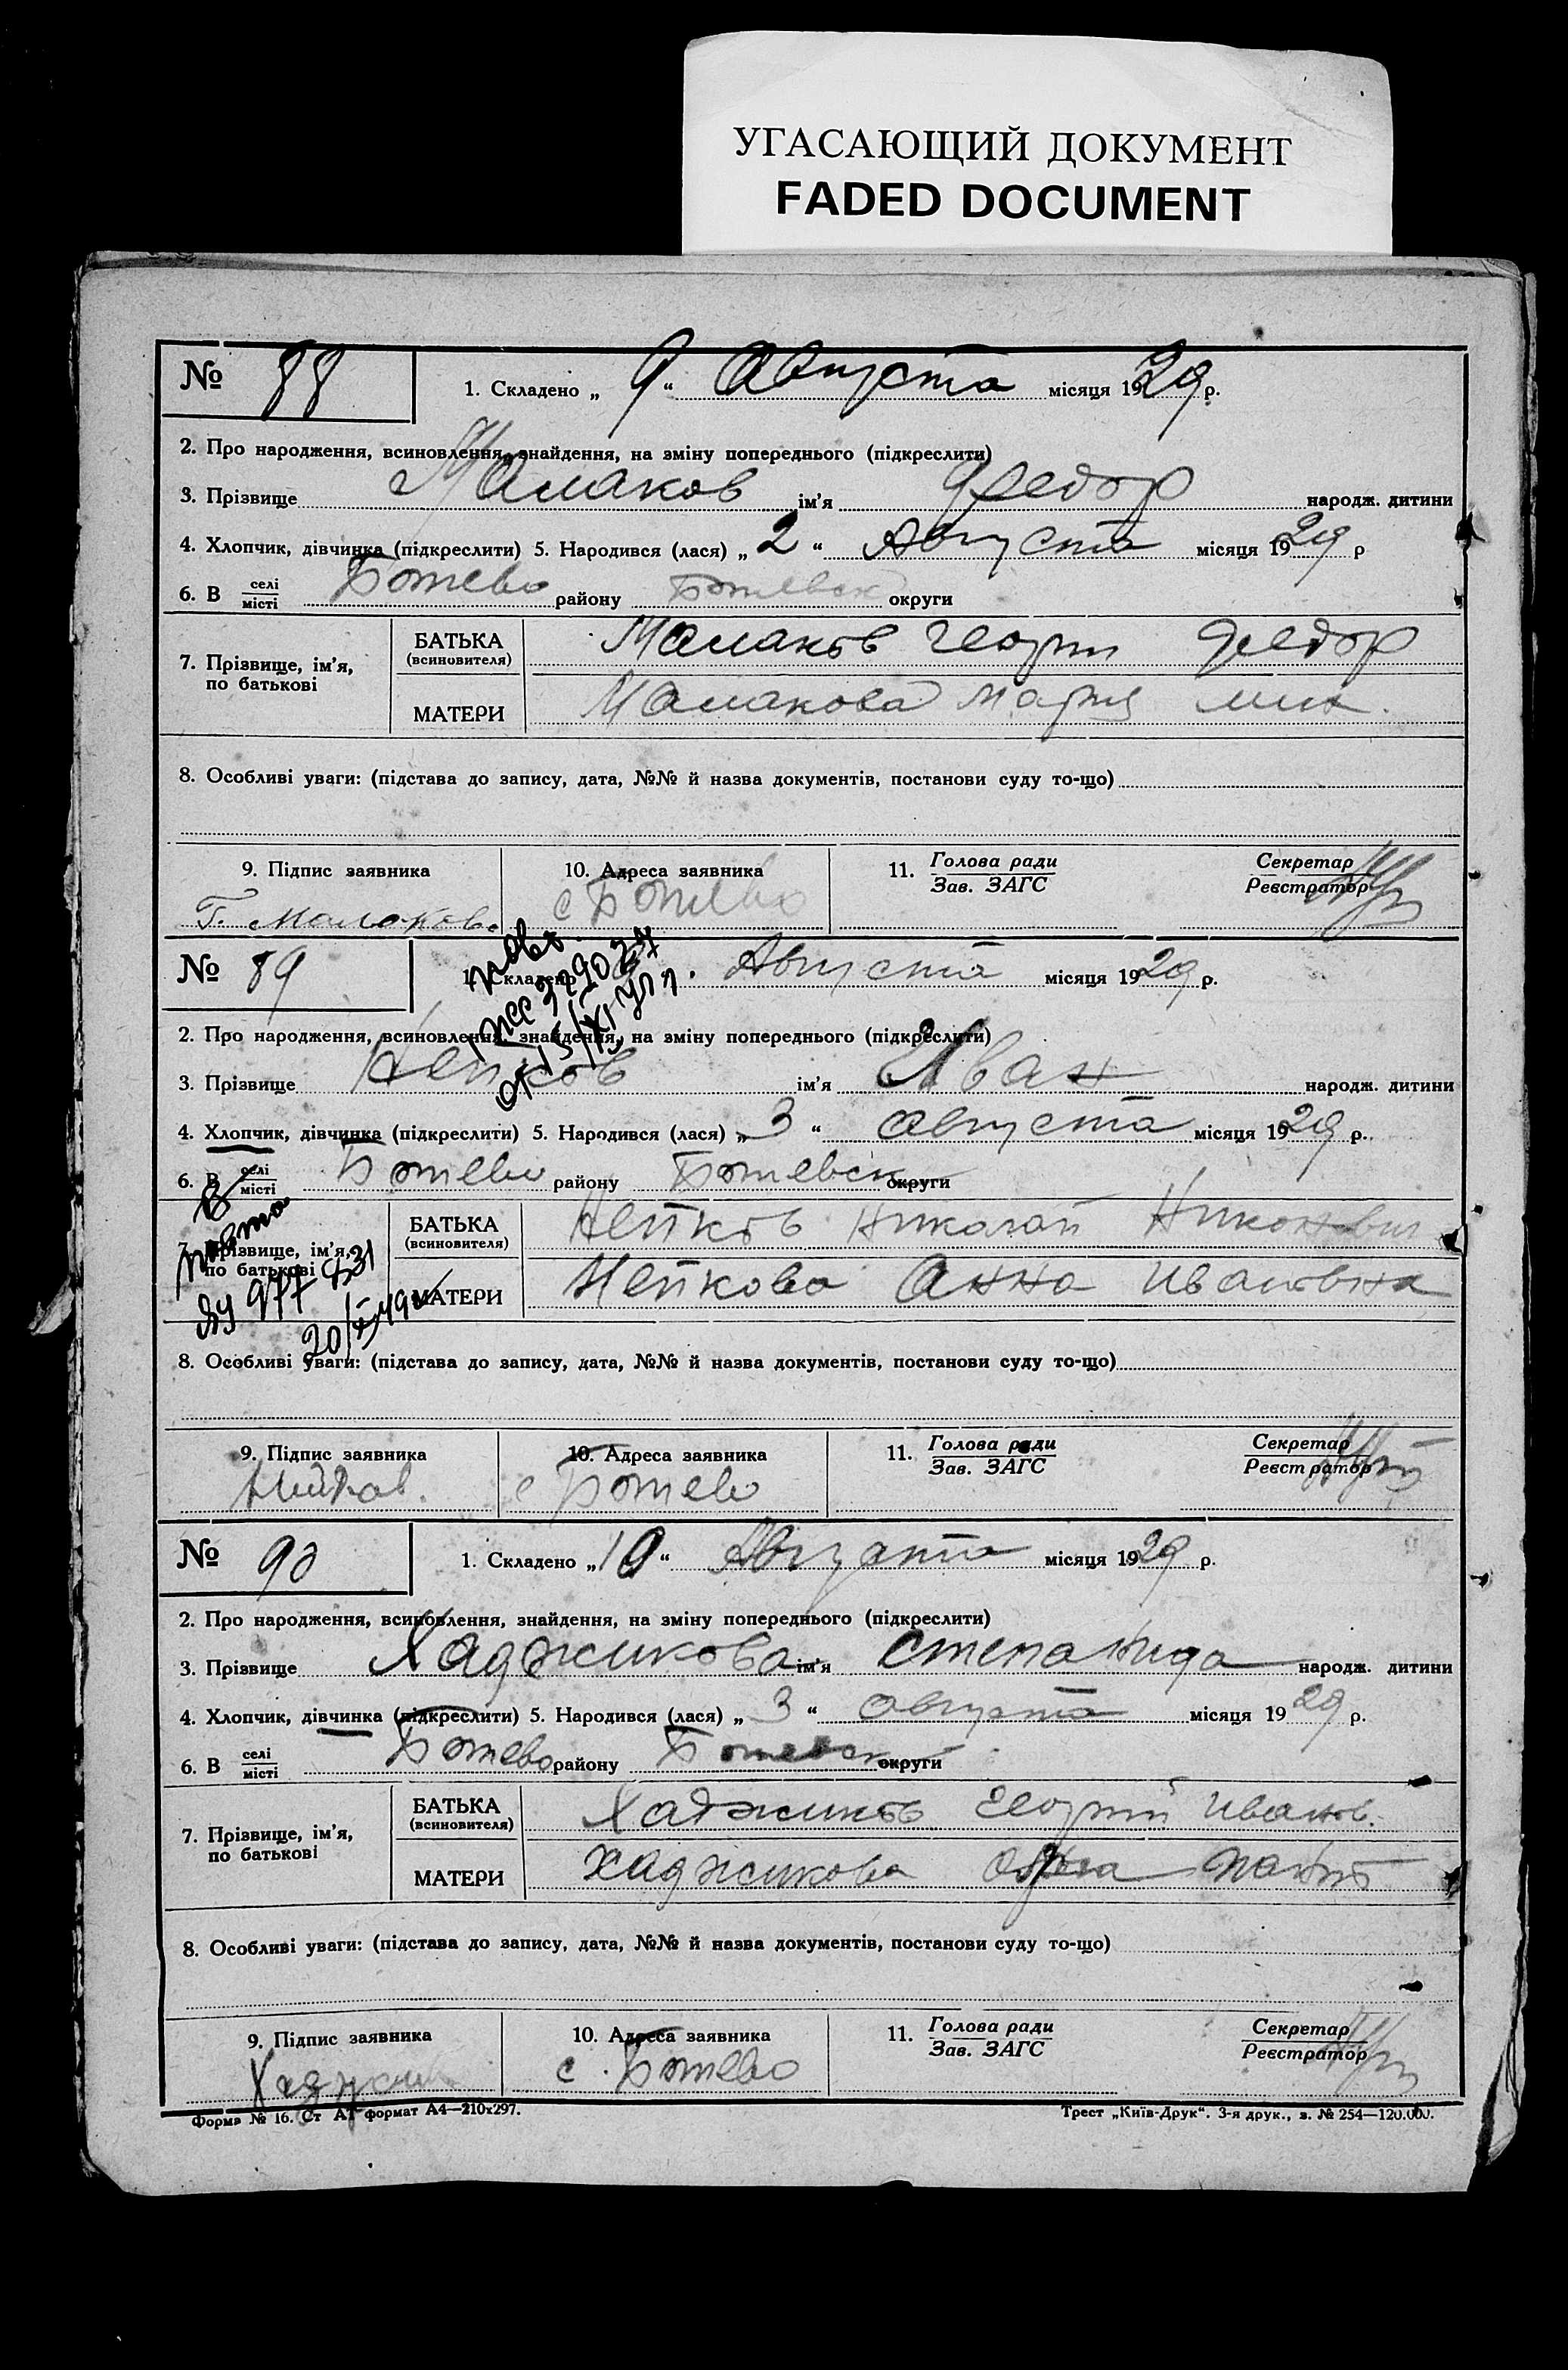 УГАСАЮЩИЙ ДОКУМЕНТ
FADED DOCUMENT
№ 88 1. Складено „ 9 “ Августа місяця 1929 р.
2. Про народження, всиновлення, знайдення, на зміну попереднього (підкреслити)
3. Прізвище Малаков ім'я Федор народж. дитини
4. Хлопчик, дівчинка (підкреслити) 5. Народився (лася) „ 2 “ Августа місяця 1929 р
6. В селі місті Ботево району Ботевск округи
7. Прізвище, ім'я, по батькові
БАТЬКА (всиновителя) Малаков Георги Федор
МАТЕРИ Малакова Мария мих.
8. Особливі уваги: (підстава до запису, дата, №№ й назва документів, постанови суду то-що)
9. Підпис заявника 10. Адреса заявника 11. Голова ради Зав. ЗАГС Секретар Реєстратор
Г. Малоков с Ботево
№ 89 1. Складено Августа місяця 1929 р.
2. Про народження, всиновлення, знайдення, на зміну попереднього (підкреслити)
3. Прізвище Нейков ім'я Иван народж. дитини
4. Хлопчик, дівчинка (підкреслити) 5. Народився (лася) „ 3 “ августа місяця 1929 р.
6. В селі місті Ботево району Ботевск округи
7. Прізвище, ім'я, по батькові
БАТЬКА (всиновителя) Нейков Николай
МАТЕРИ Нейкова Анна Ивановна
8. Особливі уваги: (підстава до запису, дата, №№ й назва документів, постанови суду то-що)
9. Підпис заявника 10. Адреса заявника 11. Голова ради Зав. ЗАГС Секретар Реєстратор
с Ботево
№ 90 1. Складено „ 10 “ Августа місяця 1929 р.
2. Про народження, всиновлення, знайдення, на зміну попереднього (підкреслити)
3. Прізвище Хаджикова ім'я Степанида народж. дитини
4. Хлопчик, дівчинка (підкреслити) 5. Народився (лася) „ 3 “ августа місяця 1929 р.
6. В селі місті Ботево району Ботевск округи
7. Прізвище, ім'я, по батькові
БАТЬКА (всиновителя) Хаджиков Георгий Иванов.
МАТЕРИ Хаджикова
8. Особливі уваги: (підстава до запису, дата, №№ й назва документів, постанови суду то-що)
9. Підпис заявника 10. Адреса заявника 11. Голова ради Зав. ЗАГС Секретар Реєстратор
с. Ботево
Форма № 16. Ст АТ формат А4—210х297. Трест „Київ-Друк“. 3-я друк., з. № 254—120.000.